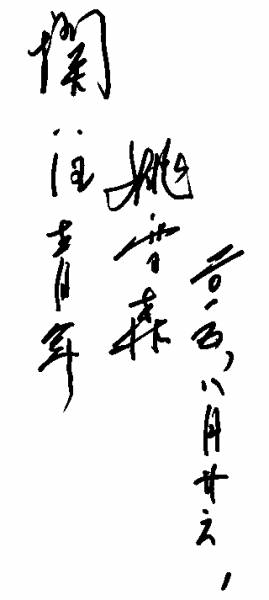 關注青年
姚雪森
二〇一五,八月廿六,